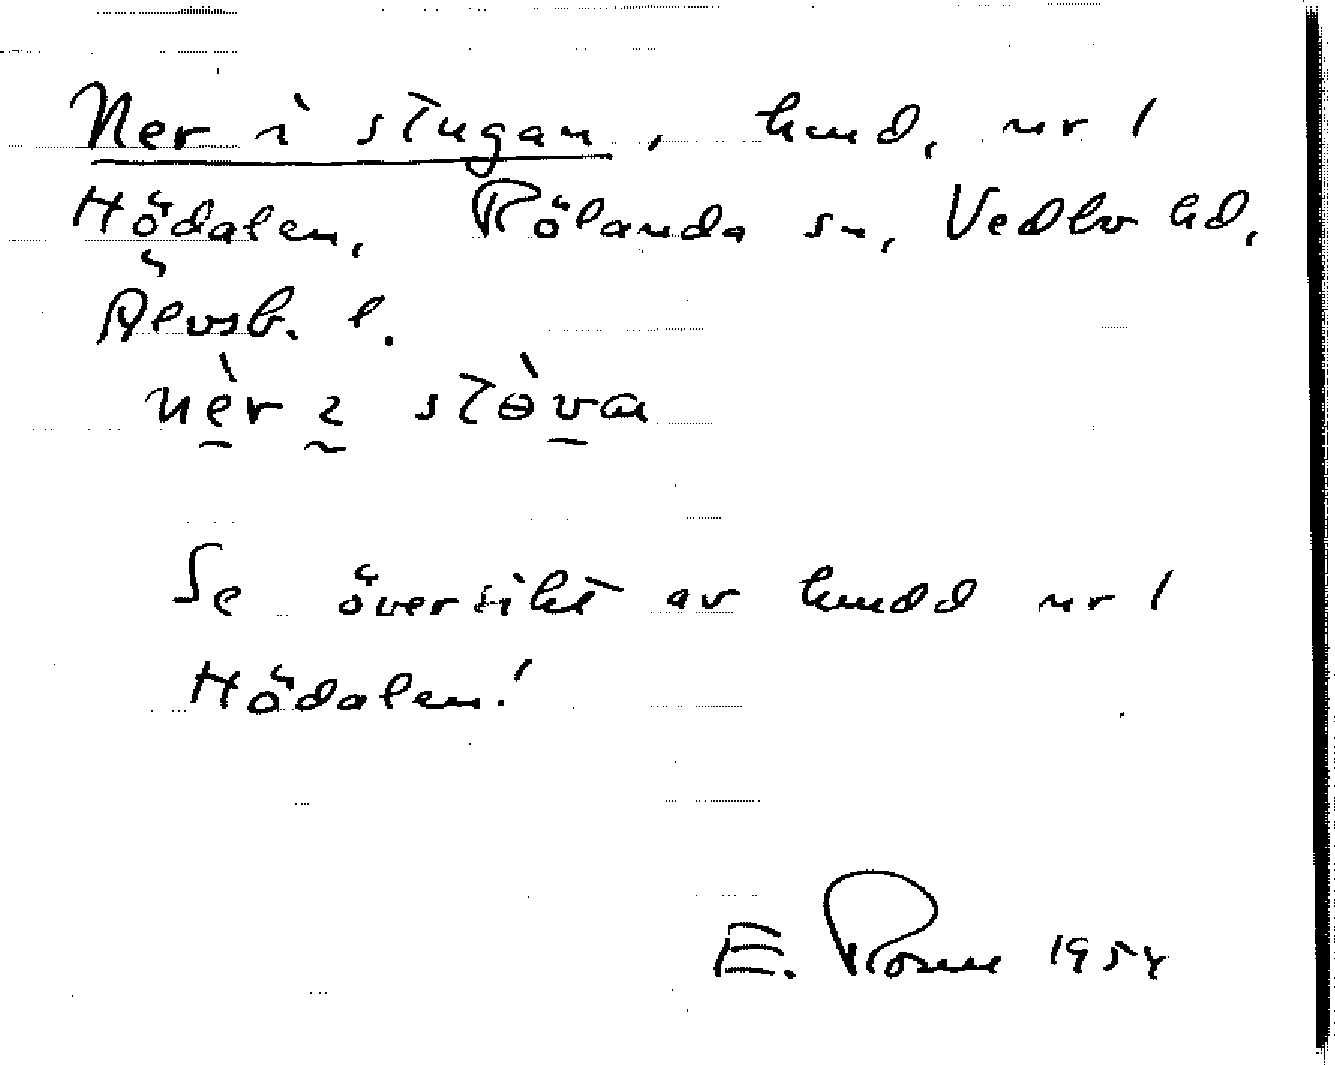 Ner i stugan, hmd, nr 1
Hödalen, Rölanda sn, Vedbo hd,
Älvsb. l.
nèr ɩ stòva
Se översikt av hmdd nr 1
Hödalen!
E. Rosne 1954